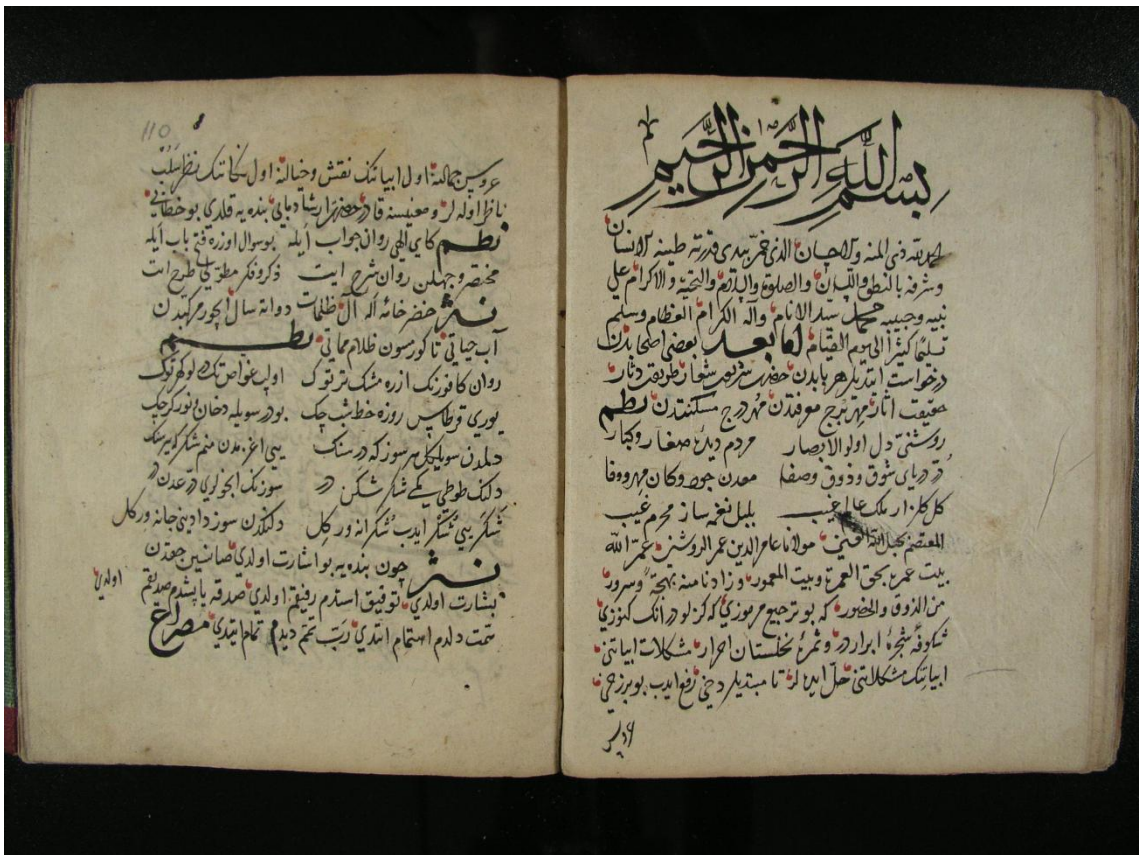 بسم الله الرحمن الرحيم
الحمد لله ذي المنة والاحسان الذي خمر بيدي قدرته طينة الانسان
وشرفه بالنطق واللسان والصلوة والسلام والتحية والاكرام علي
نبيه وحبيبه محمد سيد الانام وآله الكرام العظام وسلم
تسليما كثيرا الي يوم القيام اما بعد بعضی اصحابدن
درخواست ایتدیلر هر بابدن حضرت شریعت شعار طریقت دثار
حقیقت اثار مهر برج معرفتدن مهر درج مسکنتدن نظم
روشنئ دل اولو الابصار مردم دیدۀ صغار وکبار
در دریای شوق وذوق وصفا معدن جود وکان مهر ووفا
کل کلزار ملک عالم غیب بلبل نغمه ساز محرم غیب
المعتصم بحبل الله مولانا عمر الدین عمر الروشنی عمر الله
بیت عمره بحق العمرة وبیت المعمور وزادنا منه بهجة وسرور
من الذوق والحضور که بو ترجیع مرموزی که کزلودر انک کنوزی
شکوفۀ شجرۀ ابراردر وثمرۀ نخلستان احرار مشکلات ابیاتنی
ابیاتنک مشکلاتنی حل ایده لر تا مبتدیلر دخی رفع ایدب بو برزخی
110
عروس جمالنه اول ابیاتنک نقش وخیالنه اول نکاتنک نظر
ناظر اوله لر ومعنیسنه قادر حضرت ارشاد بابی بنده یه قلدی بو خطابی
نظم کای الهی روان جواب ایله بو سوال اوزره فتح باب ایله
مختصر وجهلن روان شرح ایت ذکر وفکر مطولی طرح ایت
نثر خضر خامه اله آل ظلمات دواته سال ایچور مرکبدن
آب حیاتی تا کورسون ظلام مماتی نظم
روان کافورنک ازره مشک تر توک اولب غواص تک لولو کهر توک
یوری قرطاس روزه خط شب چک بودر سویله دخان نور کرچک
دیلمدن سویلیکل هر سوز که درسنک ییی اغزمدن منم شکر که یرسنک
دلنک طوطی یمکی شکر شکن در سوزنک اینجولری در عدن در
شکر ییی شکر ایدب شکرانه ور کل دلنکدن سوز دادینی جانه ور کل
نثر چون بنده یه بو اشارت اولدی صانسین جعدن
بشارت اولدی توفیق استدم رفیقم اولدی صدقه یاپشدم صدیقم اولدی
تمت دلدم اهتمام ایتدی رب تمم دیدم تمام ایتدی مصراع